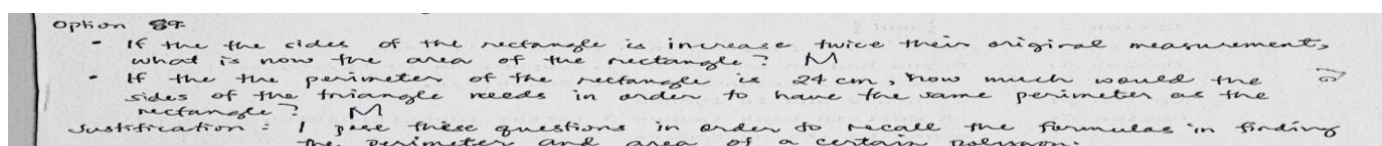 Option
• If the the sides of the rectangle is increase twice their original measurement,
what is now the area of the rectangle? M
• If the the perimeter of the rectangle is 24 cm, how much would the
sides of the triangle needs in order to have the same perimeter as the
rectangle? M
Justification: I pose these questions in order to recall the formulas in finding
the perimeter and area of a certain polygon.